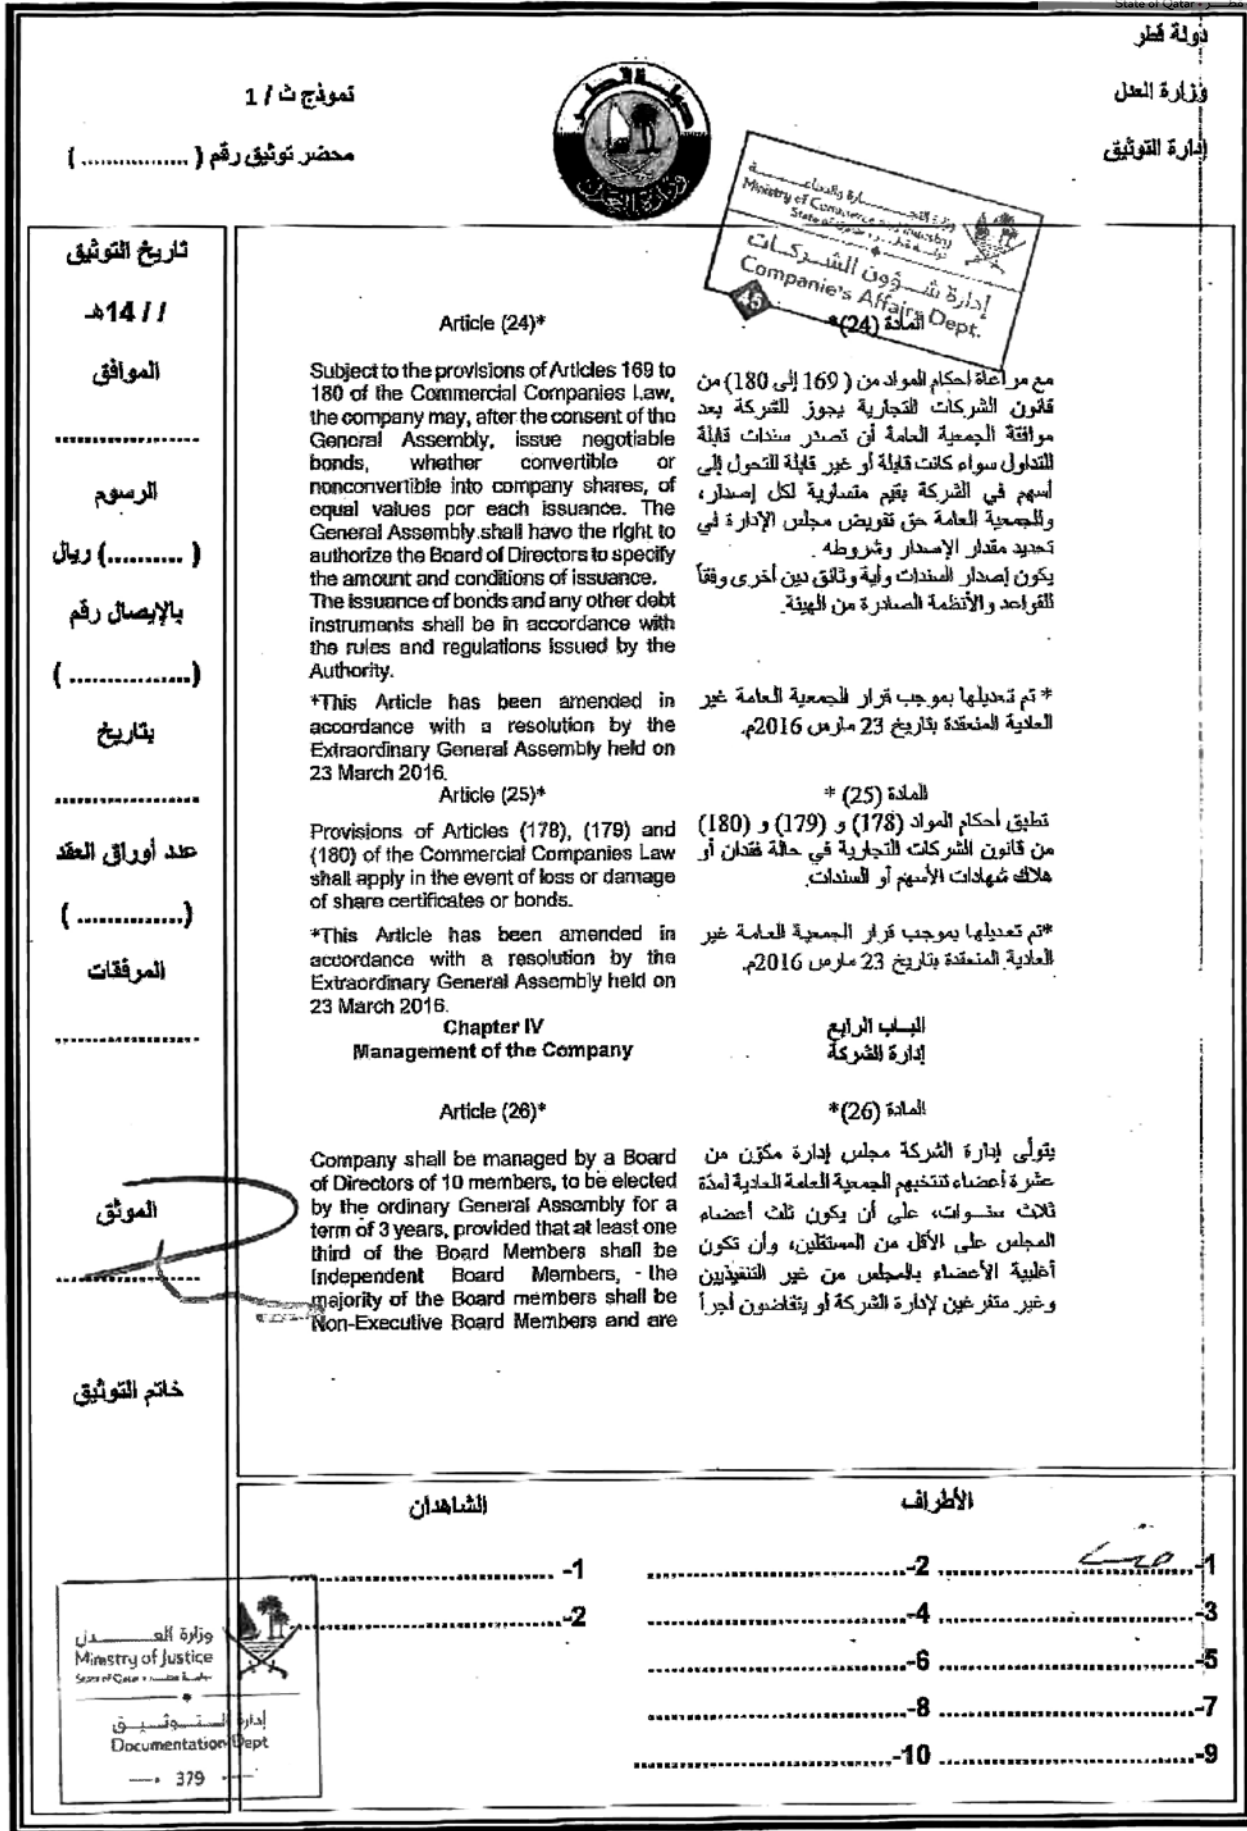 State of Qatar
دولة قطر
وزارة العدل
إدارة التوثيق
نموذج ث / 1
محضر توثيق رقم ( ................ )
وزارة التجارة والصناعة
Ministry of Commerce and Industry
State of Qatar
إدارة شؤون الشركات
Companie's Affairs Dept.
45
تاريخ التوثيق
/ / 14هـ
الموافق
.....................
الرسوم
( ..........) ريال
بالإيصال رقم
( ................)
بتاريخ
.....................
عدد أوراق العقد
( ..............)
المرفقات
.....................
الموثق
.....................
خاتم التوثيق
Article (24)*
Subject to the provisions of Articles 169 to
180 of the Commercial Companies Law,
the company may, after the consent of the
General Assembly, issue negotiable
bonds, whether convertible or
nonconvertible into company shares, of
equal values per each issuance. The
General Assembly shall have the right to
authorize the Board of Directors to specify
the amount and conditions of issuance.
The issuance of bonds and any other debt
instruments shall be in accordance with
the rules and regulations issued by the
Authority.
*This Article has been amended in
accordance with a resolution by the
Extraordinary General Assembly held on
23 March 2016.
Article (25)*
Provisions of Articles (178), (179) and
(180) of the Commercial Companies Law
shall apply in the event of loss or damage
of share certificates or bonds.
*This Article has been amended in
accordance with a resolution by the
Extraordinary General Assembly held on
23 March 2016.
Chapter IV
Management of the Company
Article (26)*
Company shall be managed by a Board
of Directors of 10 members, to be elected
by the ordinary General Assembly for a
term of 3 years, provided that at least one
third of the Board Members shall be
Independent Board Members, - the
majority of the Board members shall be
Non-Executive Board Members and are
المادة (24)*
مع مراعاة أحكام المواد من ( 169 إلى 180) من
قانون الشركات التجارية يجوز للشركة بعد
موافقة الجمعية العامة أن تصدر سندات قابلة
للتداول سواء كانت قابلة أو غير قابلة للتحول إلى
أسهم في الشركة بقيم متساوية لكل إصدار،
وللجمعية العامة حق تفويض مجلس الإدارة في
تحديد مقدار الإصدار وشروطه .
يكون إصدار السندات وأية وثائق دين أخرى وفقاً
للقواعد والأنظمة الصادرة من الهيئة.
* تم تعديلها بموجب قرار الجمعية العامة غير
العادية المنعقدة بتاريخ 23 مارس 2016م.
المادة (25) *
تطبق أحكام المواد (178) و (179) و (180)
من قانون الشركات التجارية في حالة فقدان أو
هلاك شهادات الأسهم أو السندات.
*تم تعديلها بموجب قرار الجمعية العامة غير
العادية المنعقدة بتاريخ 23 مارس 2016م.
الباب الرابع
إدارة الشركة
المادة (26)*
يتولى إدارة الشركة مجلس إدارة مكوّن من
عشرة أعضاء تنتخبهم الجمعية العامة العادية لمدة
ثلاث سنوات، على أن يكون ثلث أعضاء
المجلس على الأقل من المستقلين، وأن تكون
أغلبية الأعضاء بالمجلس من غير التنفيذيين
وغير متفرغين لإدارة الشركة أو يتقاضون أجراً
الأطراف
الشاهدان
1-............................ 2-............................
3-............................ 4-............................
5-............................ 6-............................
7-............................ 8-............................
9-............................ 10-............................
1- ............................
2-............................
وزارة العدل
Ministry of Justice
State of Qatar • دولة قطر
إدارة التوثيق
Documentation Dept
379